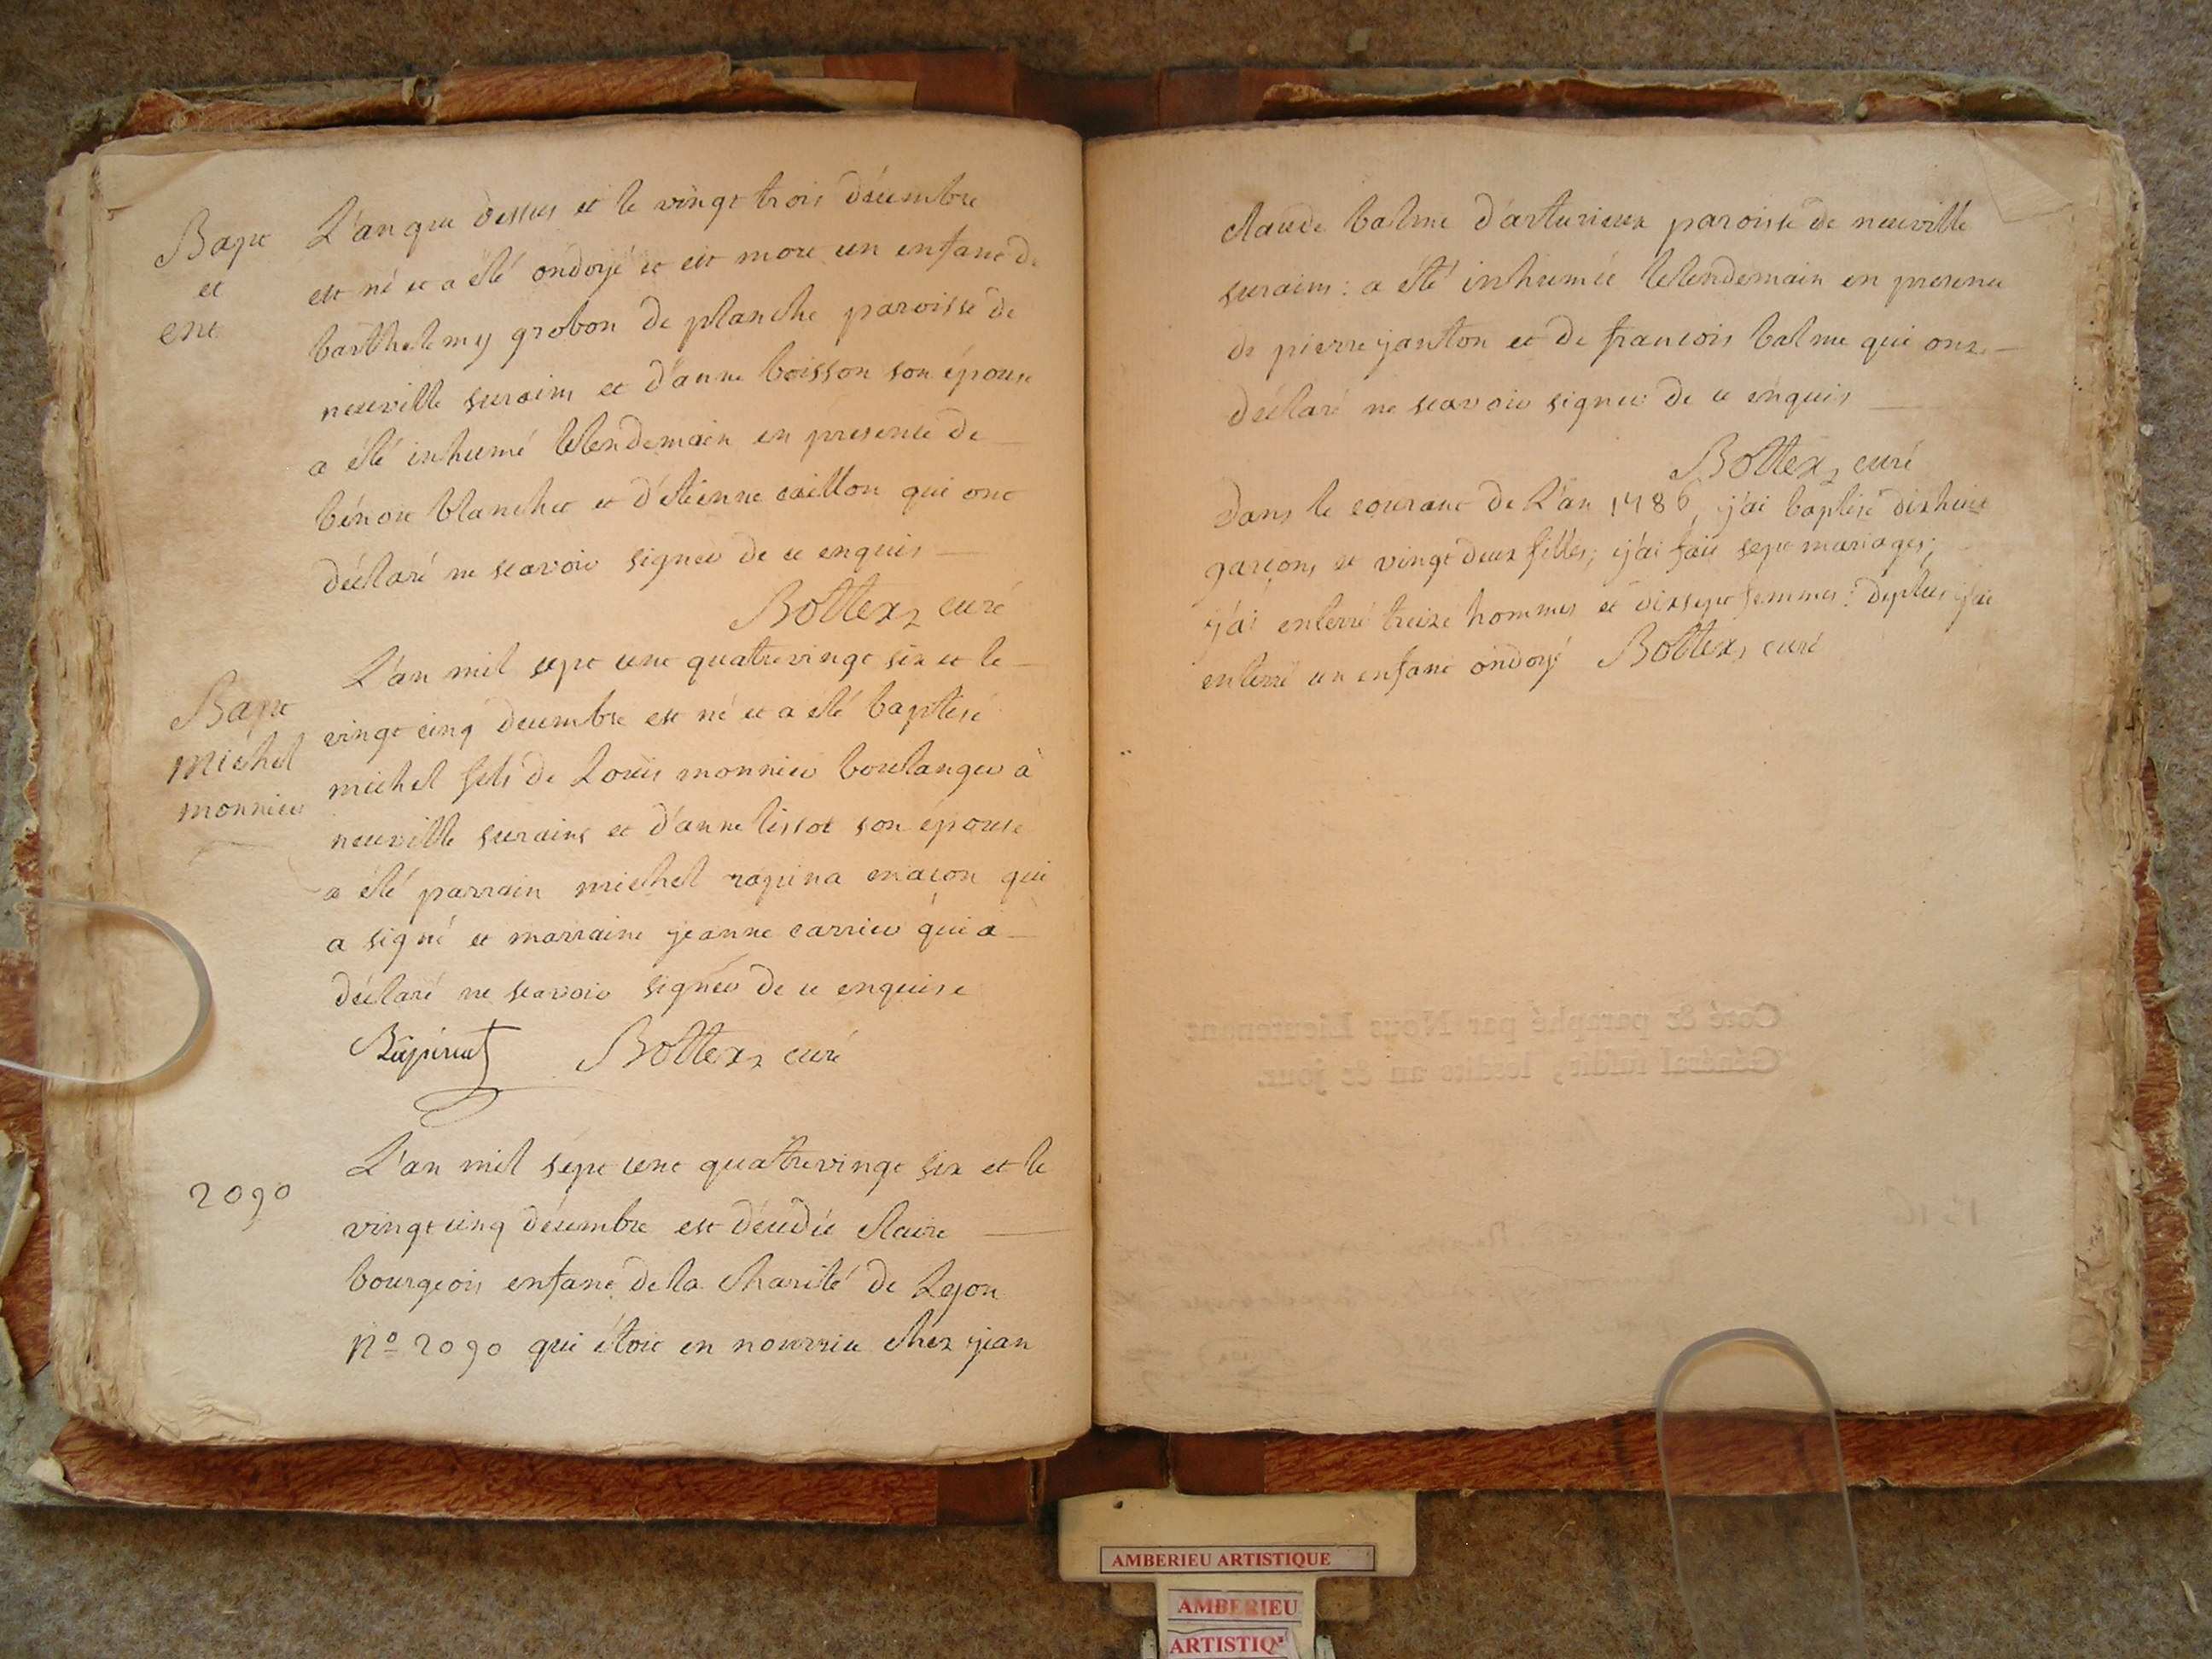 Bapt
et
ent
L'an que dessus et le vingt trois décembre
est né et a été ondoyé et est mort un enfant de
barthelemy grobon de planche paroisse de
neuville surains et d'anne boisson son épouse
a été inhumé lelendemain en presence de
bénoit blanchet et d'étienne caillon qui ont
déclaré ne scavoir signer de ce enquis
Bottex, curé
Bapt
michel
monnier
L'an mil sept cent quatrevingt six et le
vingt cinq decembre est né et a été baptisé
michel fils de Louis monnier boulanger à
neuville surains et d'anne tissot son épouse
a été parrain michel rapina maçon qui
a signé et marraine jeanne carrier qui a
déclaré ne scavoir signer de ce enquise
Rapinat Bottex, curé
2090
L'an mil sept cent quatrevingt six et le
vingt cinq décembre est décedée claire
bourgeois enfant de la charité de Lyon
n° 2090 qui étoit en nourrice chez jean
claude balme d'arturieux paroisse de neuville
surains : a été inhumée lelendemain en presence
de pierre janton et de francois balme qui ont
déclaré ne scavoir signer de ce enquis
Bottex, curé
Dans le courant de L'an 1786, j'ai baptisé dix huit
garçons et vingt deux filles; j'ai fait sept mariages;
j'ai enterré treize hommes et dix sept femmes : deplus j'ai
enterré un enfant ondoyé Bottex, curé
Coté & paraphé par Nous Lieutenant
Général susdit, lesdits an & jour.
AMBERIEU ARTISTIQUE
AMBERIEU
ARTISTIQ